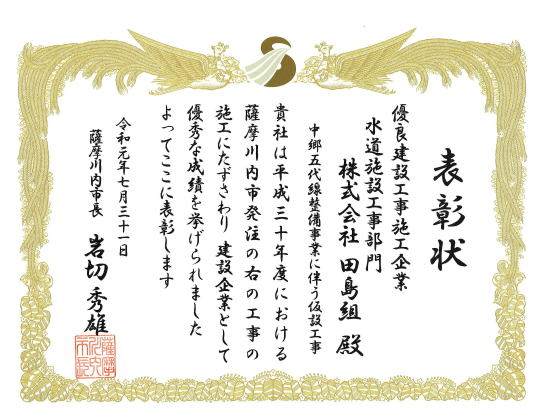 表彰状
優良建設工事施工企業
水道施設工事部門
株式会社 田島組 殿
中郷五代線整備事業に伴う仮設工事
貴社は平成三十年度における
薩摩川内市発注の右の工事の
施工にたずさわり 建設企業として
優秀な成績を挙げられました
よってここに表彰します
令和元年七月三十一日
薩摩川内市長 岩切秀雄